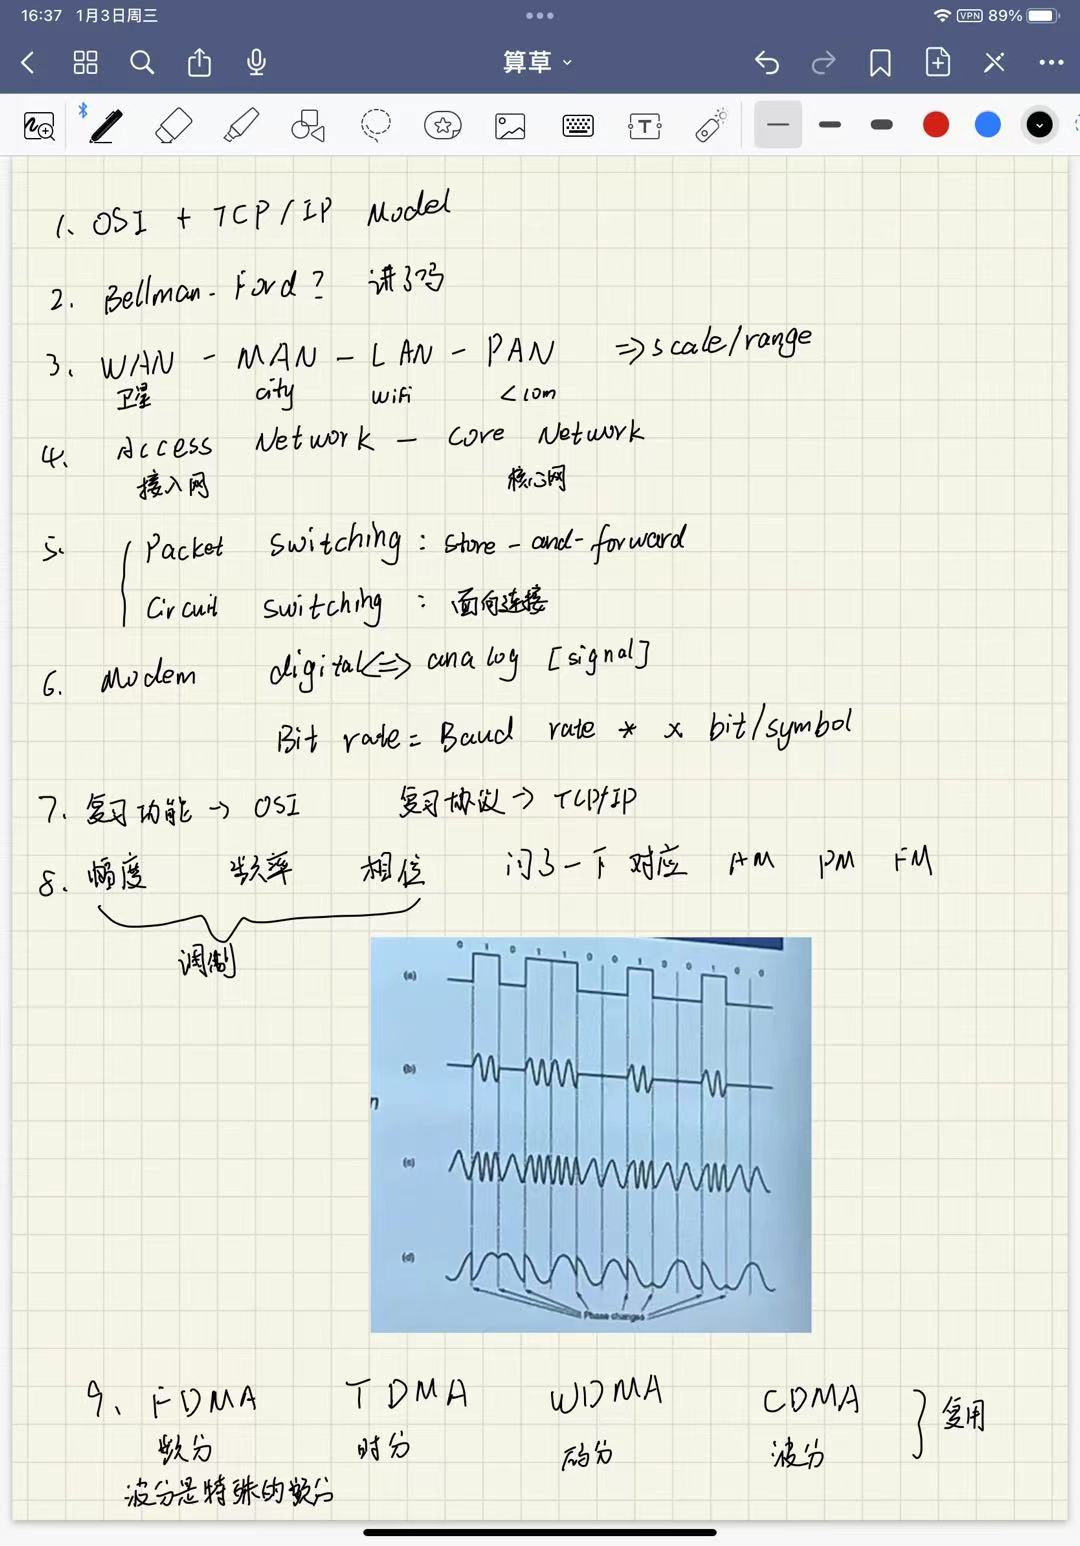 16:37 1月3日周三
VPN 89%
算草
T
1、OSI + TCP/IP Model
2. Bellman-Ford? 讲了吗
3、WAN - MAN - LAN - PAN => scale/range
卫星 city wifi <10m
4. Access Network - Core Network
接入网 核心网
5. Packet switching: store-and-forward
Circuit switching: 面向连接
6. Modem digital<=> analog [signal]
Bit rate = Baud rate * x bit/symbol
7. 复习功能 → OSI 复习协议 → TCP/IP
8. 幅度 频率 相位 问了一下对应 AM PM FM
调制
0 1 0 1 1 0 0 1 0 0 1 0 0
(a)
(b)
n
(c)
(d)
Phase changes
9、FDMA TDMA WDMA CDMA } 复用
频分 时分 码分 波分
波分是特殊的频分